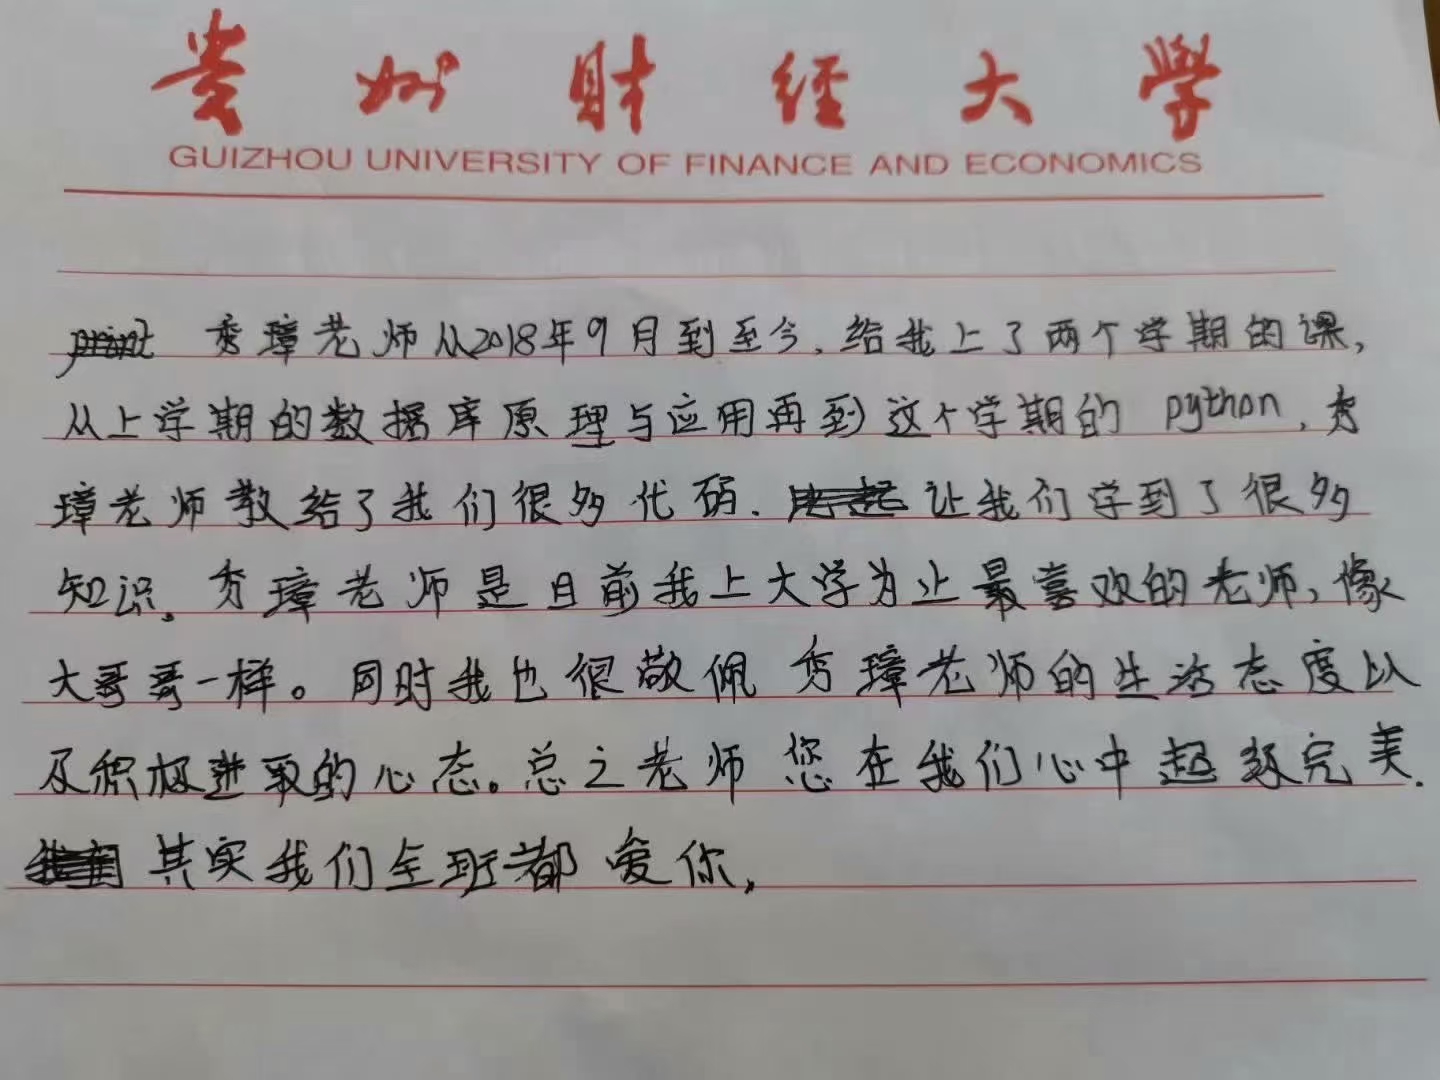 贵州财经大学
GUIZHOU UNIVERSITY OF FINANCE AND ECONOMICS
print 秀璋老师从2018年9月到至今,给我上了两个学期的课,
从上学期的数据库原理与应用再到这个学期的 python,秀
璋老师教给了我们很多代码.让我们学到了很多
知识。秀璋老师是目前我上大学为止最喜欢的老师,像
大哥哥一样。同时我也很敬佩秀璋老师的生活态度以
及积极进取的心态。总之老师 您在我们心中超级完美.
其实我们全班都爱你,